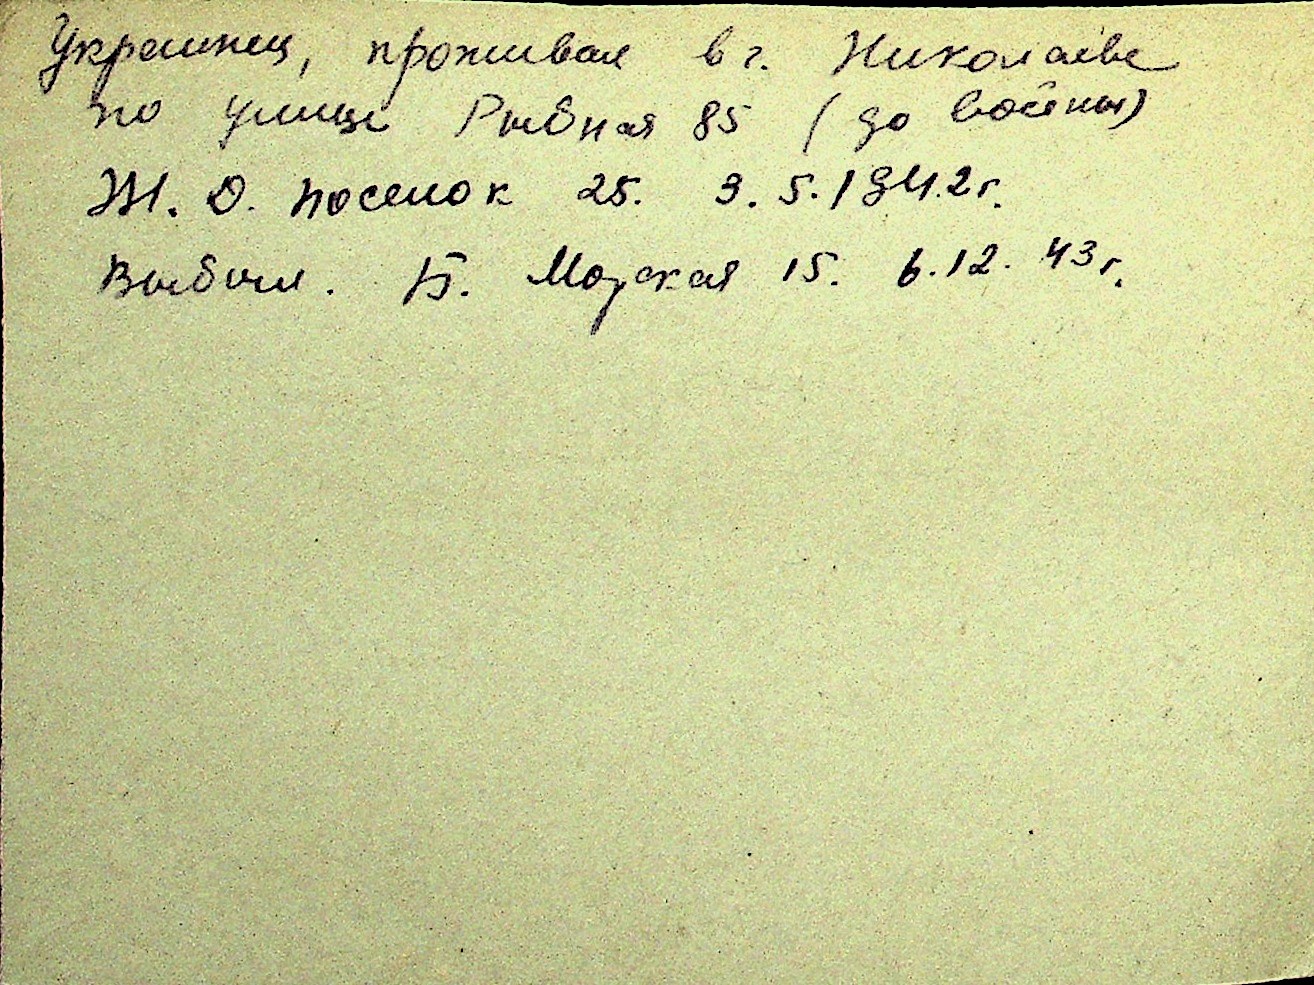 Украинец, проживал в г. Николаеве
по улице Рыбная 85 (до войены)
Ж. Д. поселок 25. 3. 5. 1942 г.
Выбыл. Б. Морская 15. 6. 12. 43 г.